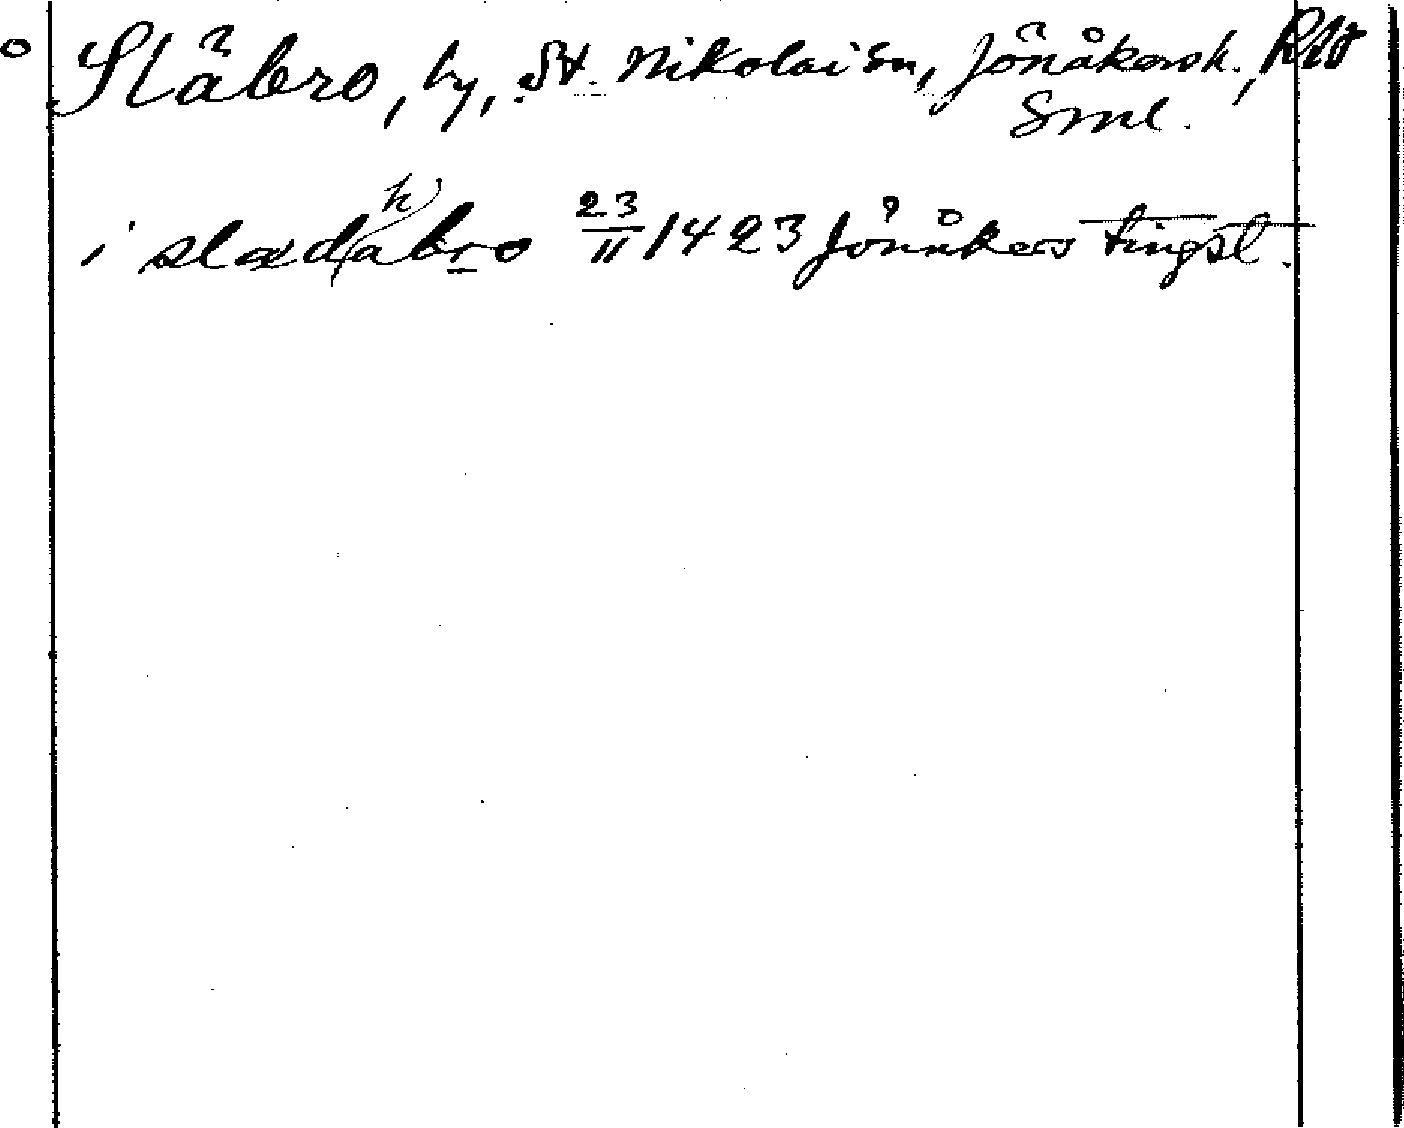 Släbro, by, St. Nikolai sn, Jönåkers h.,
Sml.
i slædhabro 23/11 1423 Jönåkers tingst.